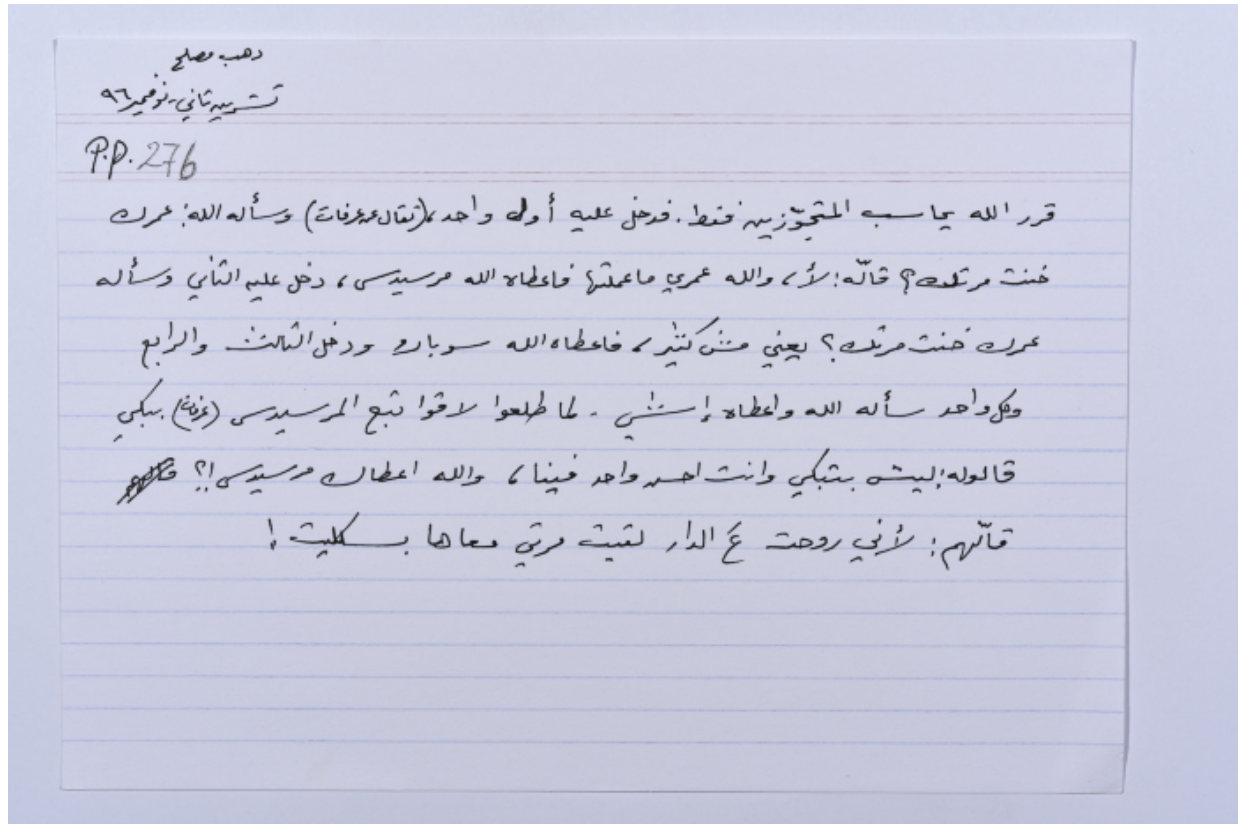 دهب مصلح
تشرين تاني - نوفمبر ٩٦
P.P. 276
قرر الله يحاسب المتجوّزين فقط. فدخل عليه أول واحد، (تقال عن عرفات) وسأله الله: عمرك
خنت مرتك؟ قالّه: لأ، والله عمري ما عملتها فاعطاه الله مرسيدس، دخل عليه الثاني وسأله
عمرك خنت مرتك؟ يعني مش كثير، فاعطاه الله سوبارو ودخل الثالث والرابع
وكل واحد سأله الله واعطاه إشي. لما طلعوا لاقوا تبع المرسيدس (عرفات) ببكي
قالوله: ليش بتبكي وانت احسن واحد فينا، والله اعطاك مرسيدس!؟
قالّهم: لأني روحت عَ الدار لقيت مرتي معاها بسكليت!